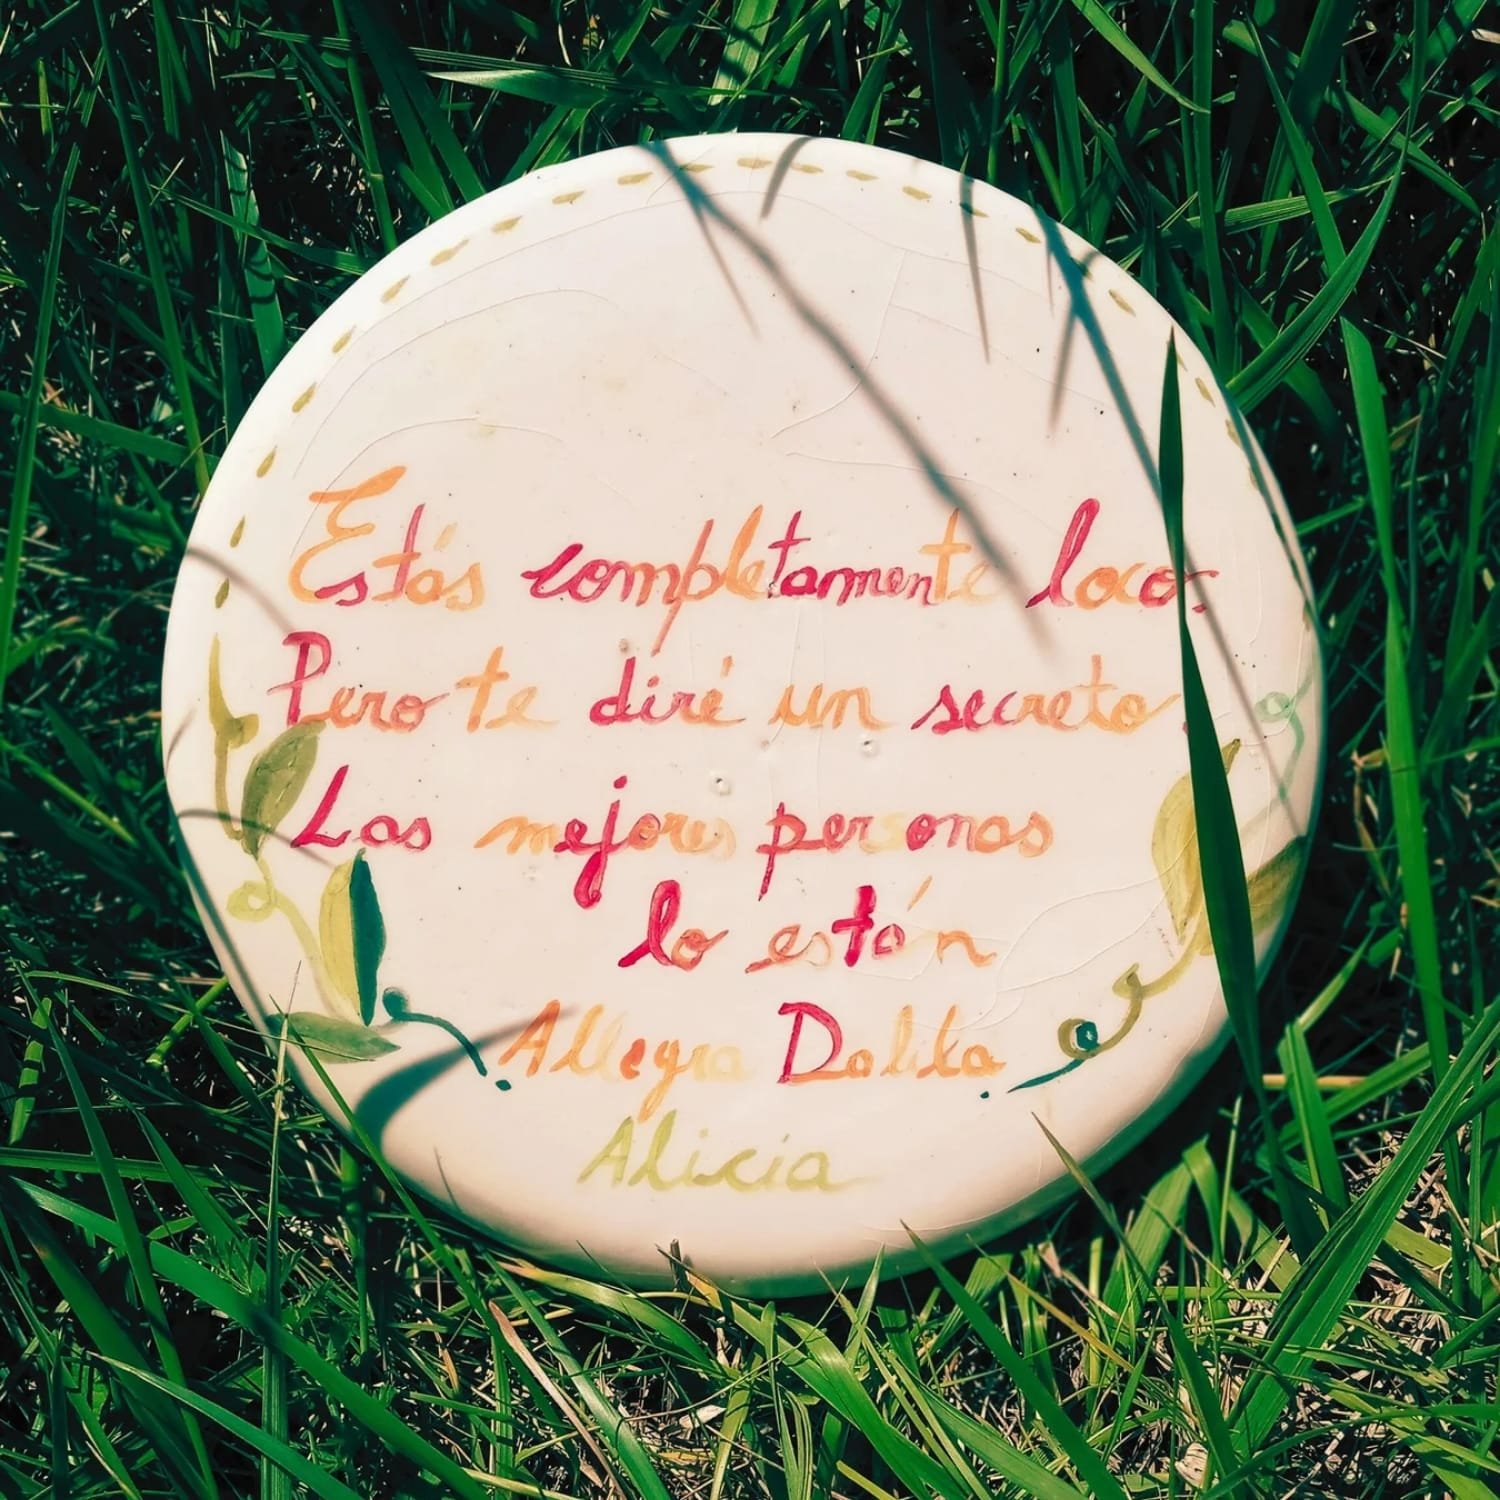 Estás completamente loco.
Pero te diré un secreto.
Las mejores personas
lo están
Allegra Dalila
Alicia